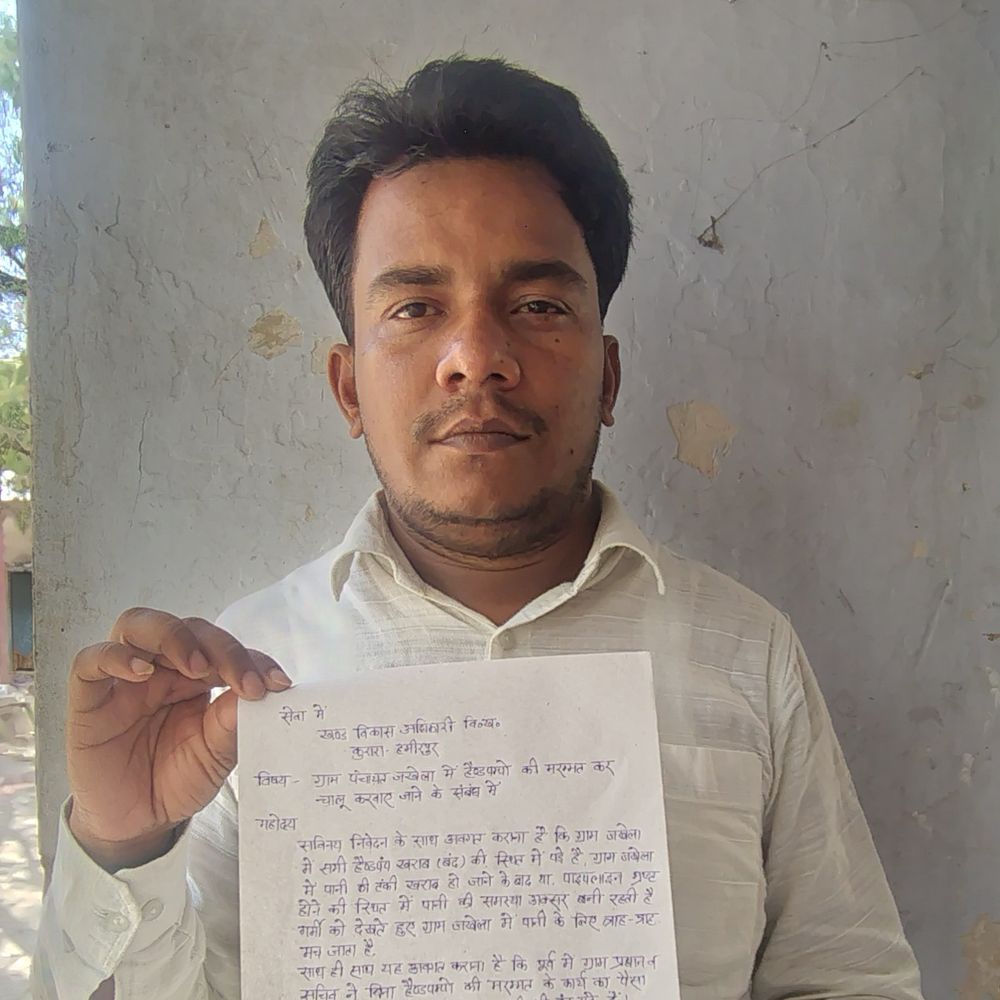 सेवा में
खण्ड विकास अधिकारी वि०ख०
कुरारा- हमीरपुर
विषय - ग्राम पंचायत जखेला में हैण्डपम्पो की मरम्मत कर
चालू करवाए जाने के संबंध में
महोदय
सविनय निवेदन के साथ अवगत कराना है कि ग्राम जखेला
में सभी हैण्डपंप खराब (बंद) की स्थित में पडे है, ग्राम जखेला
में पानी की टंकी खराब हो जाने के बाद या, पाइपलाइन भ्रष्ट
होने की स्थित में पानी की समस्या अक्सर बनी रहती है
गर्मी को देखते हुए ग्राम जखेला में पानी के लिए त्राह-त्राह
मच जाता है.
साथ ही साथ यह अवगत कराना है कि पूर्व में ग्राम प्रधान व
सचिव ने बिना हैण्डपम्पो की मरम्मत के कार्य का पैसा